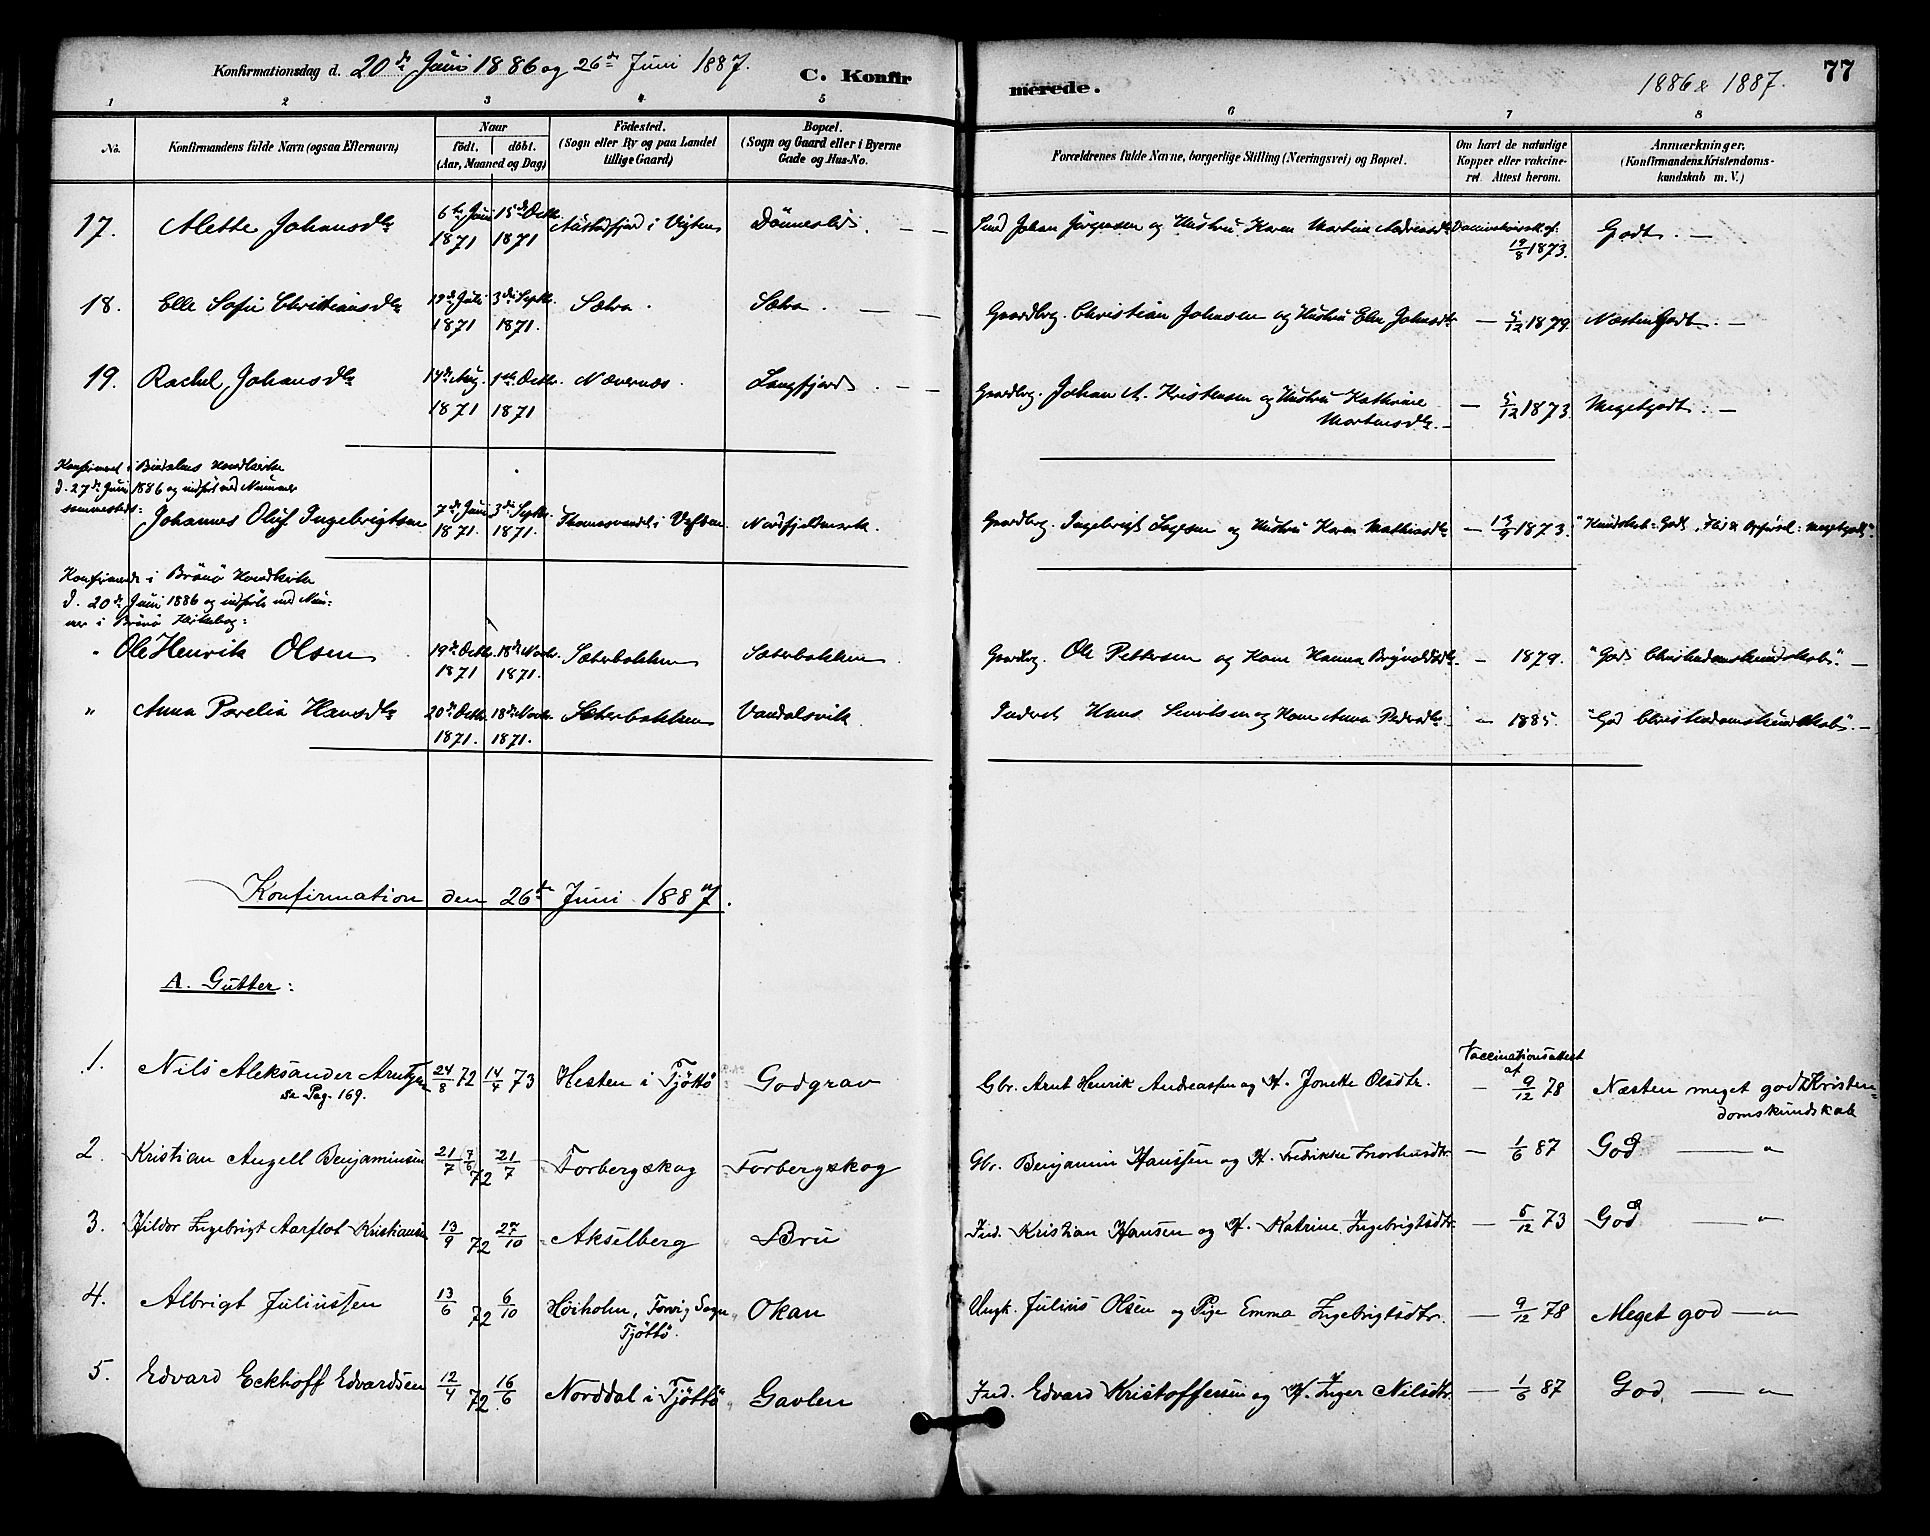 Konfirmationsdag d. 20de Juni 1886 og 26de Juni 1887.
C. Konfirmerede.
1886 & 1887.
77
1 2 3 4 5 6 7 8
No.
Konfirmandens fulde Navn (ogsaa Efternavn)
Naar
födt, döbt.
(Aar, Maaned og Dag)
Födested.
(Sogn eller By og paa Landet
tillige Gaard)
Bopæl.
(Sogn og Gaard eller i Byerne
Gade og Hus-No.
Forældrenes fulde Navne, borgerlige Stilling (Næringsvei) og Bopæl.
Om havt de naturlige
Kopper eller vakcine-
ret. Attest herom.
Anmærkninger.
(Konfirmandens Kristendoms-
kundskab m. V.)
17. Alette Johansdtr 6te Juni 1871 15de Octbr. 1871 i Vigten Dønneslid. — — Johan Jørgensen og Hustru Karen Martine Andreasdtr Vaccinationsatt. af 19/8 1873. Godt. —
18. Elle Sofie Christiansdtr 19de Juli 1871 3die Septbr. 1871. Sætra. Sætra. — — Gaardbrg. Christian Johnsen og Hustru Elen Johnsdtr — 5/12 1879 Næsten Godt. —
19. Rachel Johansdtr 14de Aug. 1871 1ste Octbr. 1871 Nævernæs. Langfjord. — — Gaardbrg. Johan A. Kristensen og Hustru Kathrine
Mortensdtr. — — 5/12 1873 Megetgodt. —
Konfirmeret i Bindalens Hovedkirke
d. 27de Juni 1886 og indført med Nummer
sammesteds:
Johannes Oluf Ingebrigtsen 7de Juni 1871. 3die Septbr. 1871. i Vefsen. Nordfjeldmark. Gaardbrg. Ingebrigt og Hustru Karen Mathiasdtr — 13/9 1873. "Kundskab: Godt, Flid & Opførsel: megetgodt".
Konfirmerede i Brönö Hovedkirke
d. 20de Juni 1886 og indførte med Num-
mer i Brönö Kirkebog:
" Ole Henrik Olsen 19de Octbr. 1871 18de Novbr. 1871. Sæterbakken Sæterbakken. Gaardbrg. Ole Pettersen og Kone Hanna Brynildsdtr. — 1879. "God Christendomskundskab". —
" Anna Parelia Hansdtr 20de Octbr. 1871. 18de Novbr. 1871. Sæterbakken Vandalsvik. Inderst Hans og Kone Anna Pedersdtr — — 1885. "God Christendomskundskab". —
Konfirmation den 26de Juni 1887.
A. Gutter:
Vaccinationsattest
af
1. Nils Aleksander Arntzen 24/8 72 14/4 73 Hesten i Tjöttö Godgrav Gbr. Arnt Henrik Andreassen og H. Jonette Olsdtr. — 9/12 78 Næsten meget god Kristen-
se Pag. 169. domskundskab
2. Kristian Angell Benjaminsen 21/7 (7/6) 72 21/7 Torbergskog Torbergskog Gbr. Benjamin Hanssen og H. Fredrikke — 1/6 87 God — "
3. Hildor Ingebrigt Aarflot Kristiansen 13/9 72 27/10 Akselberg Bru Ind. Kristian Hansen og H. Katrine Ingebrigtsdtr — 5/12 73 God — "
4. Albrigt Juliussen 13/6 72 6/10 Höiholm, Forvig Sogn, Okan Ungk. Julius Olsen og Pige Emma Ingebrigtsdtr. — 9/12 78 Meget god — "
Tjöttö.
5. Edvard Eckhoff Edvardsen 12/4 72 16/6 Norddal i Tjöttö Gavlen Ind. Edvard Kristoffersen og H. Inger Nilsdtr. — 1/6 87 God. — "